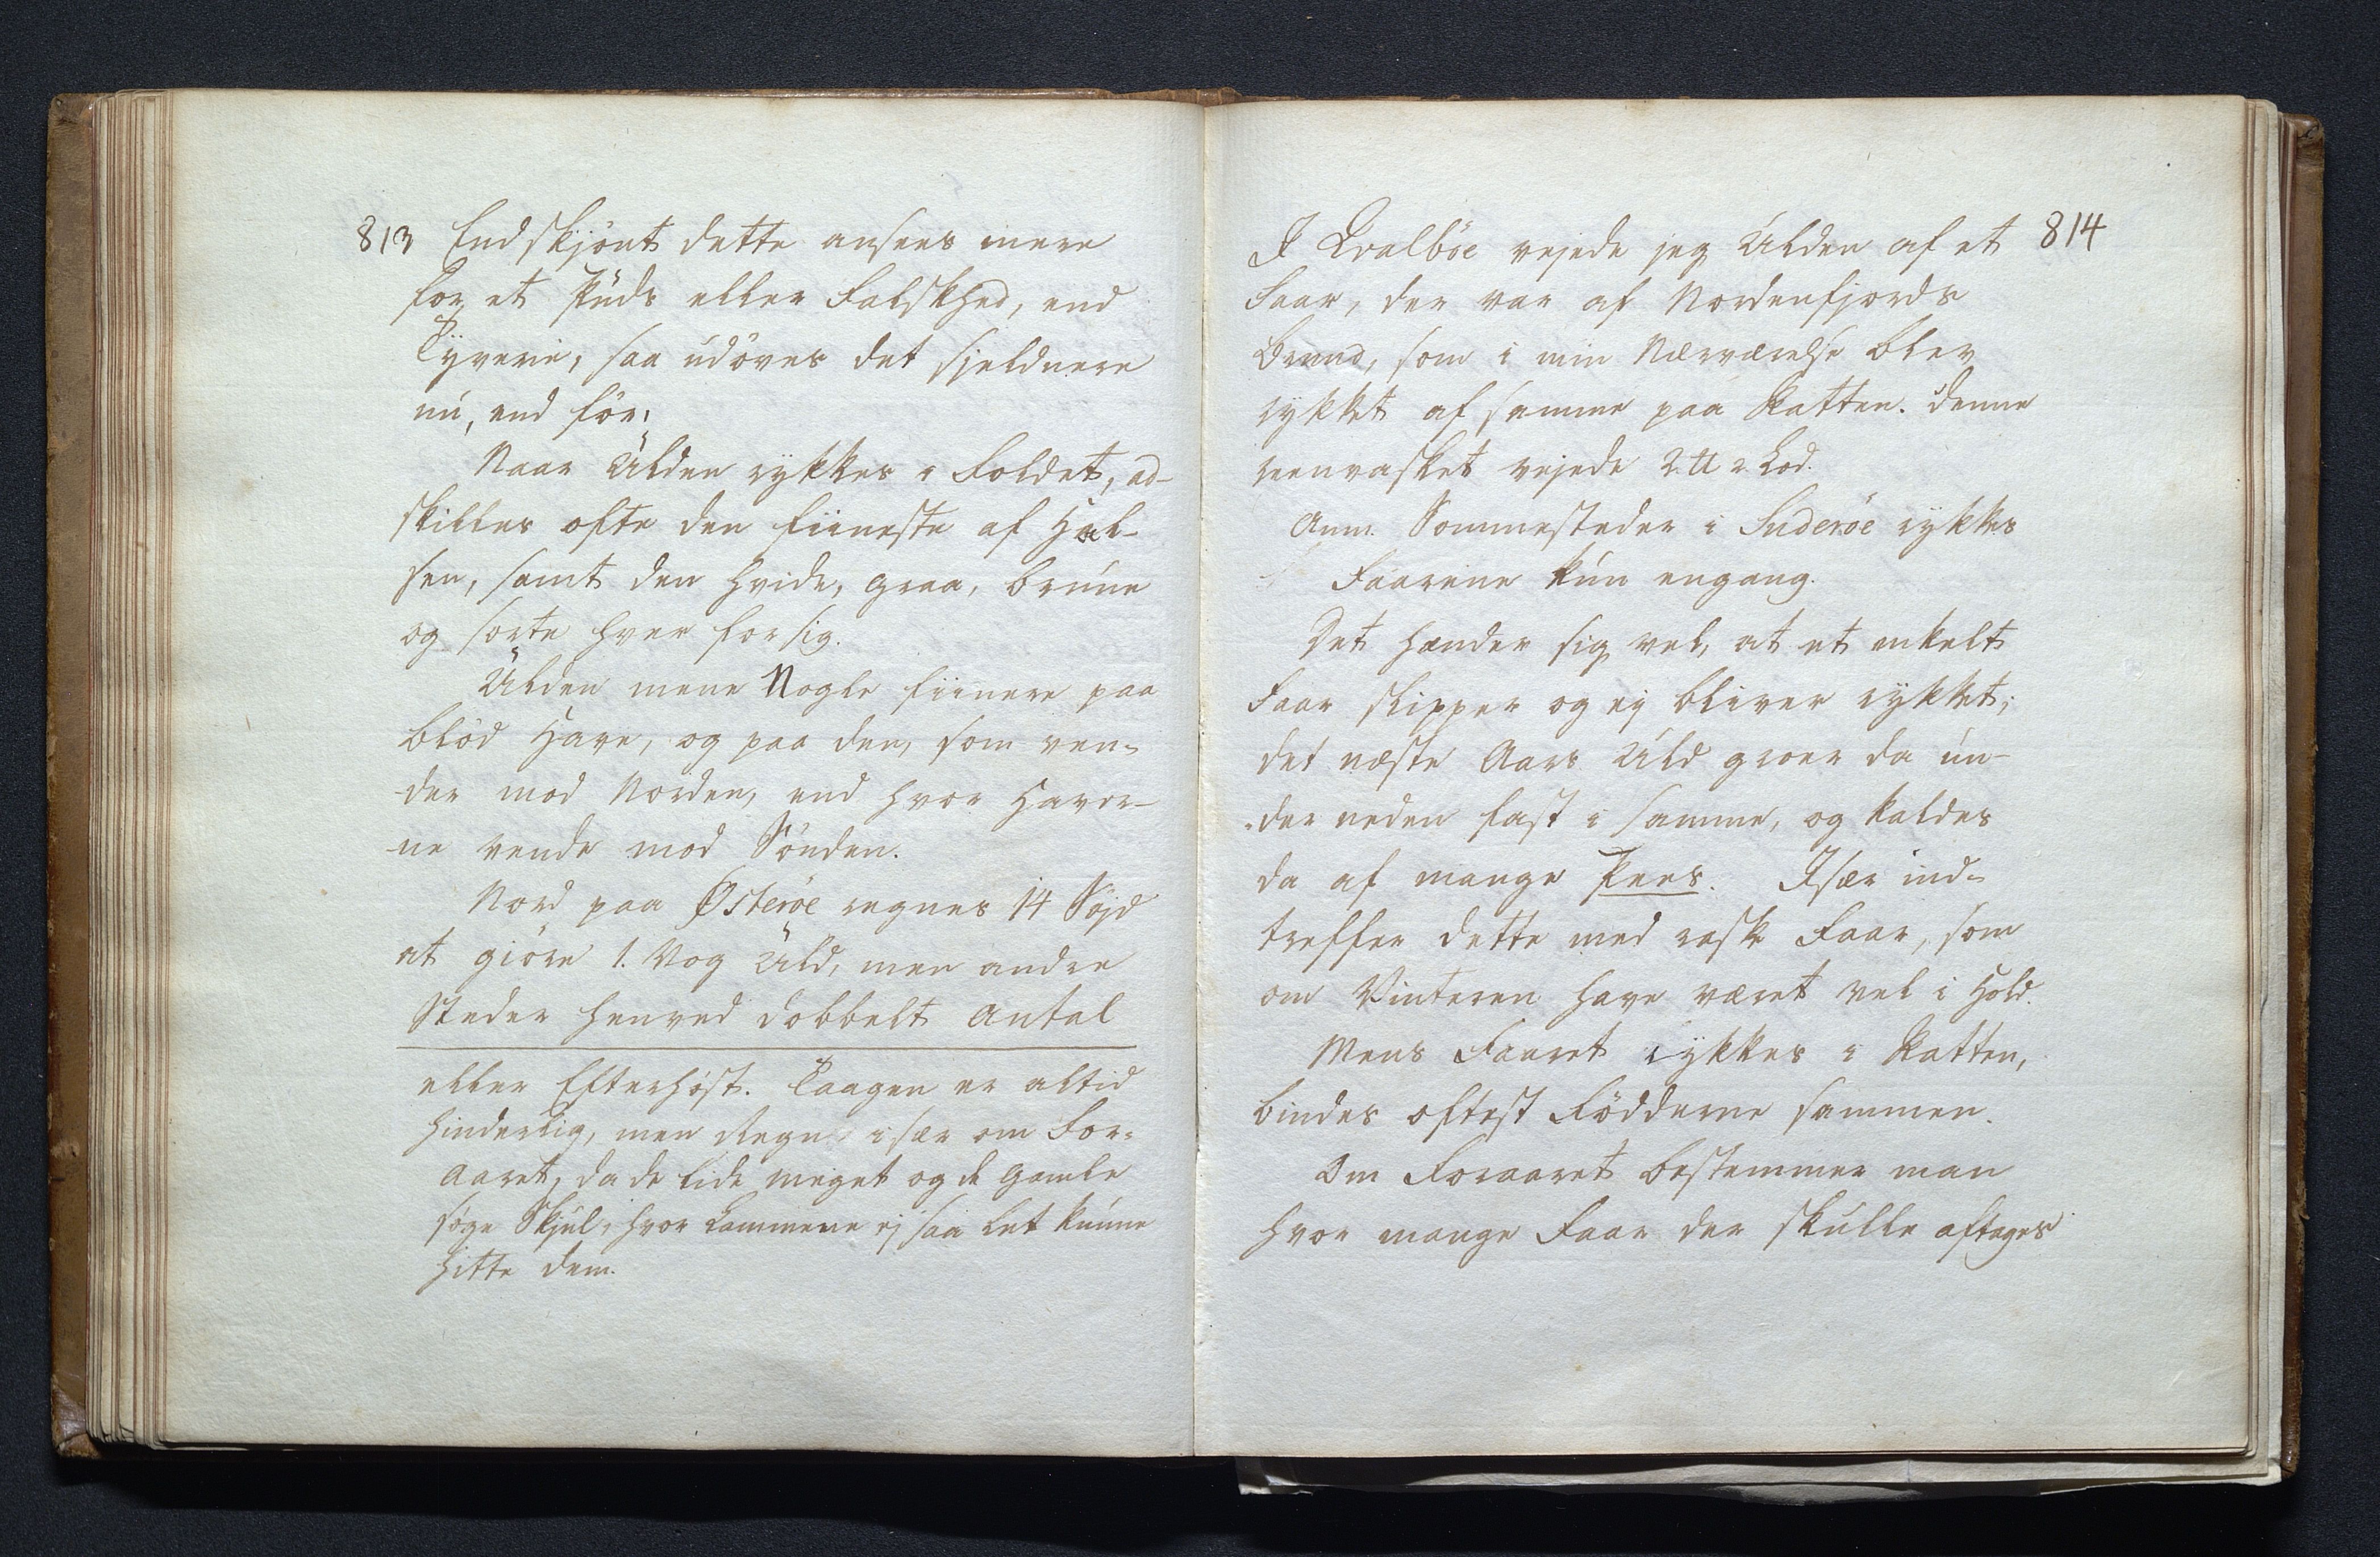 813 Endskjönt dette ansees mere
for et Puds eller Falskhed, end
Tyverie, saa udöves det sjeldnere
nu, end för.
Naar Ulden rykkes i Foldet, ad-
skilles ofte den fiineste af Hal-
sen, samt den hvide, graa, brune
og sorte hver for sig.
Ulden mene Nogle fiinere paa
blöd Have, og paa den, som ven-
der mod Norden, end hvor Haver-
ne vende mod Sönden.
Nord paa Österöe regnes 14 Söjd
at giöre 1. Vog Uld, men andre
Steder henved dobbelt Antal
eller Efterhöst. Taagen er altid
hinderlig, men Regn især om For-
aaret, da de lide meget og de gamle
söge Skjul, hvor Lammene ej saa let kunne
hitte dem.
814
I Qvalböe vejede jeg Ulden af et
Faar, der var af Nordenfjords
som i min Nærværelse blev
rykket af samme paa Ratten. Denne
reenvasket vejede 2 ℔ 2 Lod.
Anm. Sommesteder i Suderöe rykkes
Faarene kun engang.
Det hænder sig vel, at et enkelt
Faar slipper og ej bliver rykket;
det næste Aars Uld groer da un-
der neden fast i samme, og kaldes
da af mange Pees. Især ind-
treffer dette med rask Faar, som
om Vinteren have været vel i Hold.
Mens Faaret rykkes i Ratten,
bindes oftest Födderne sammen.
Om Foraaret bestemmer man
hvor mange Faar der skulle aftages